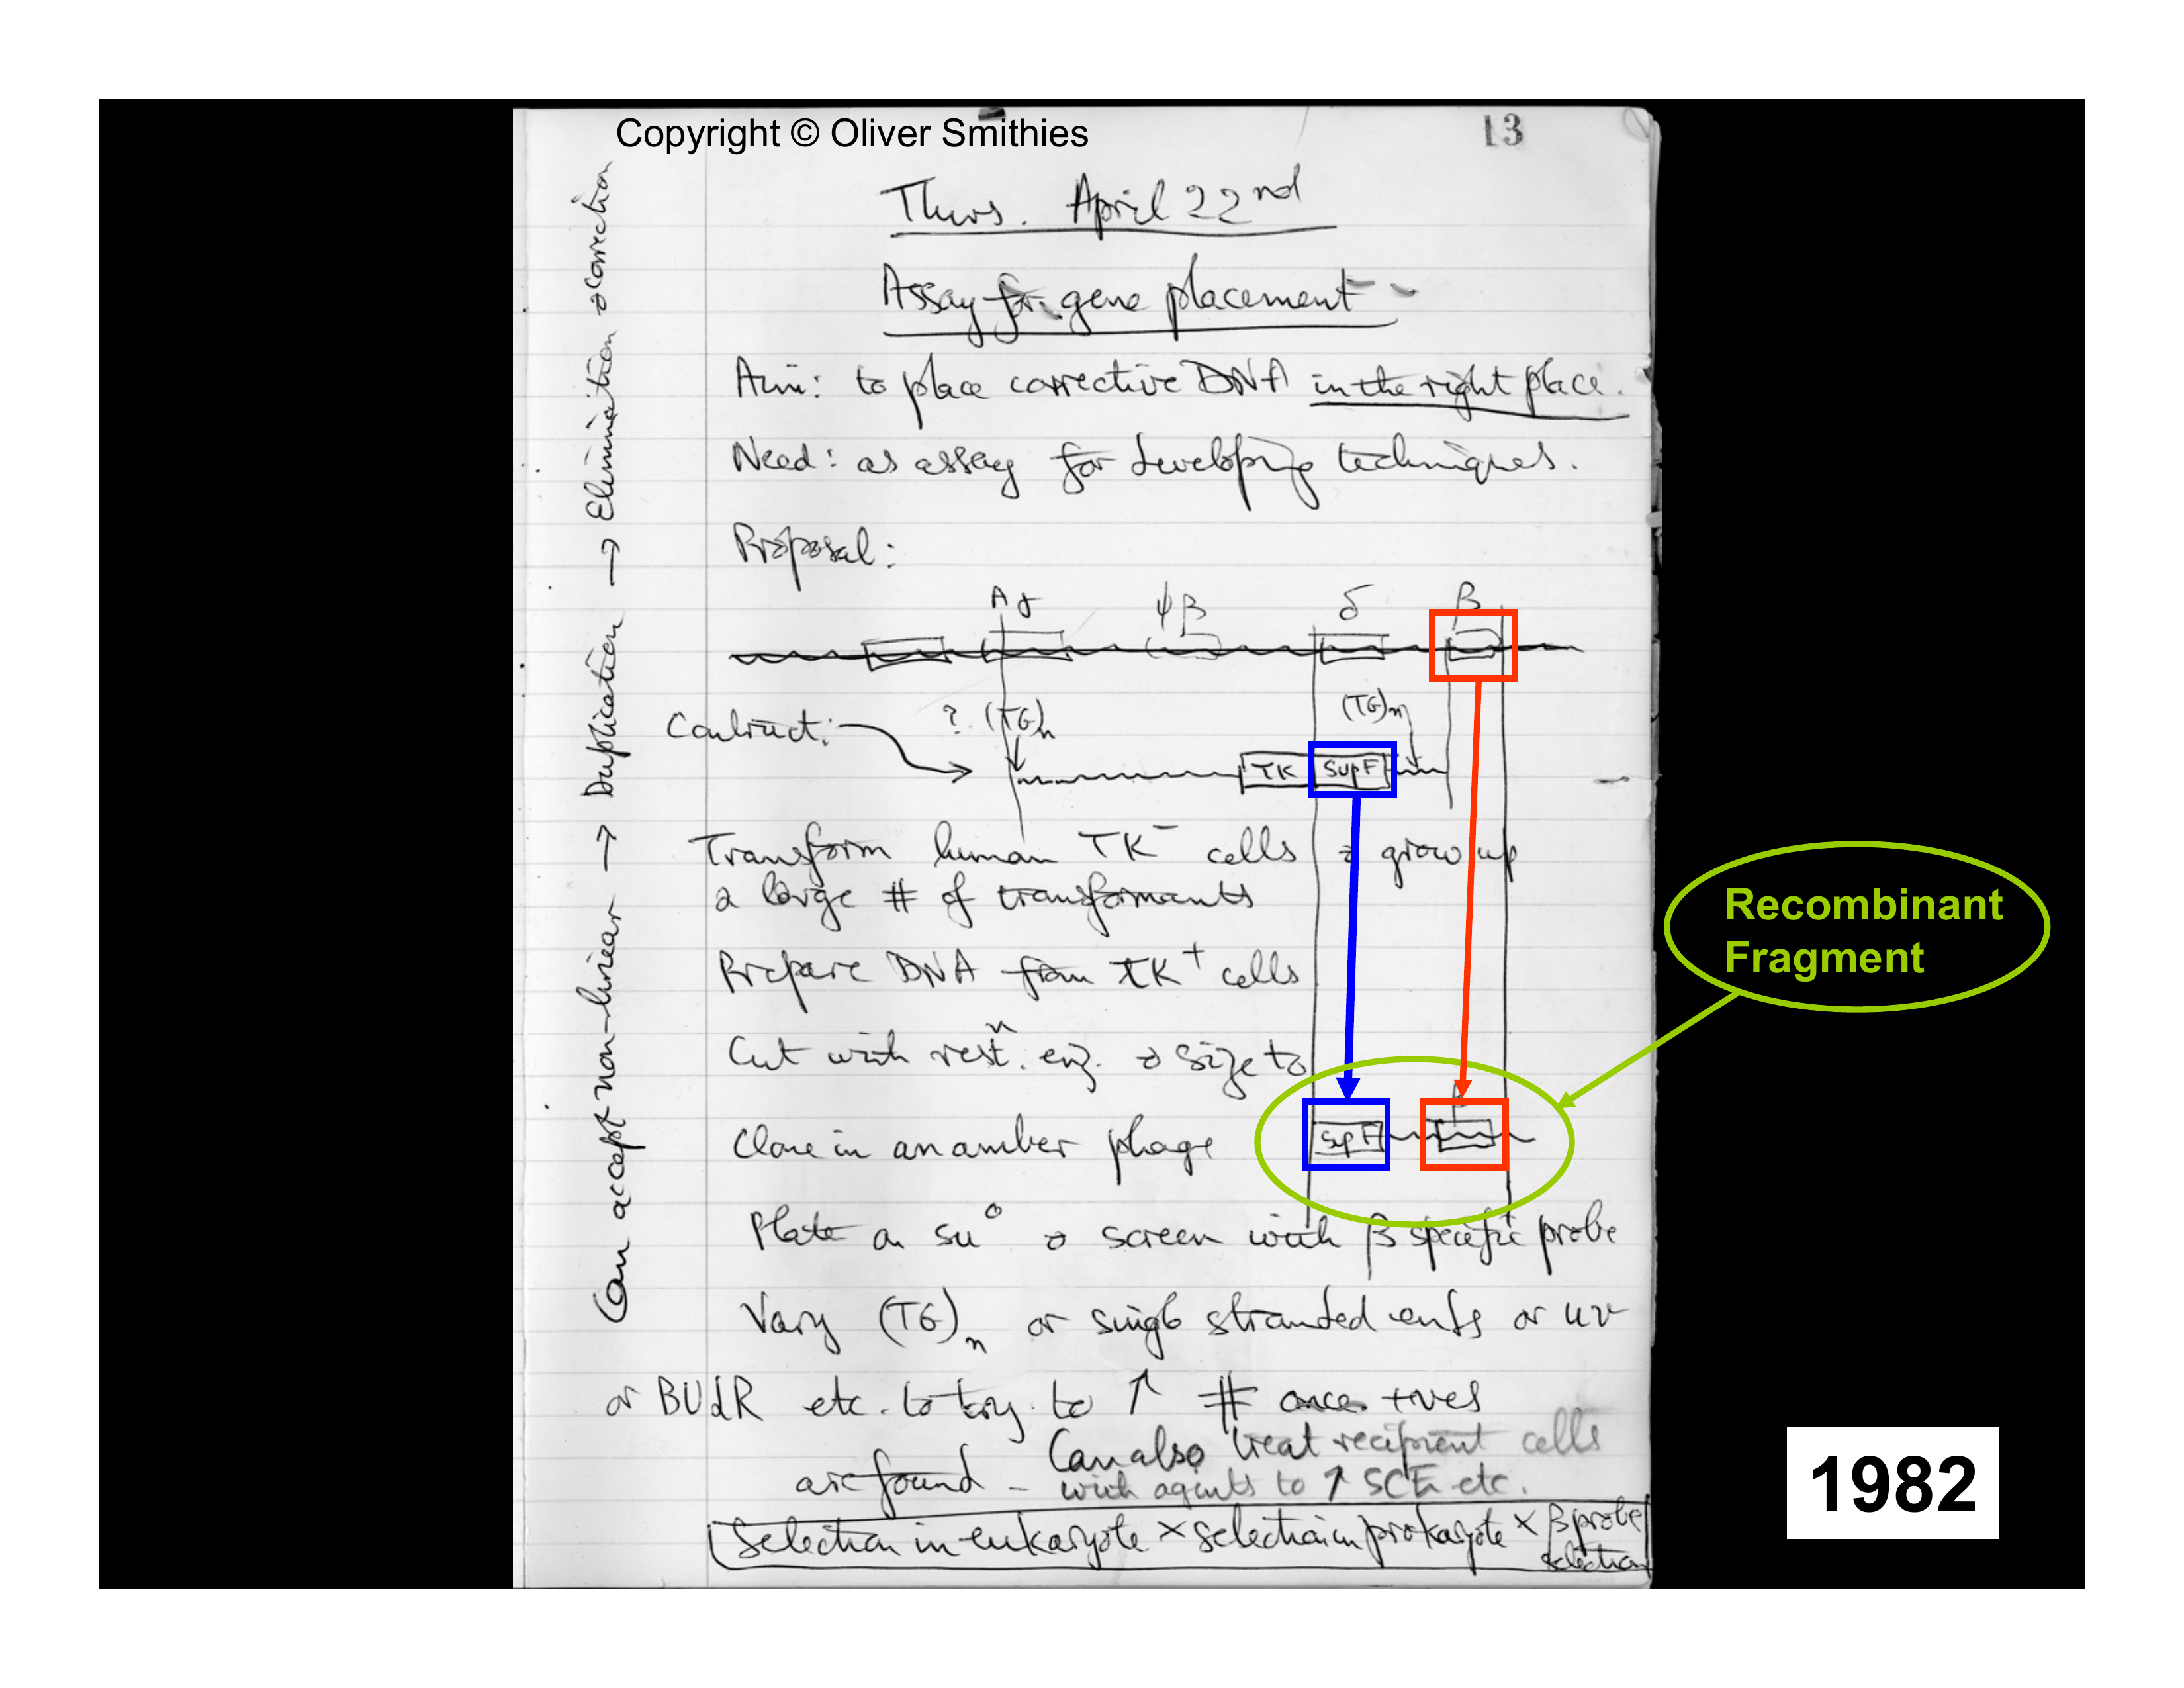 Copyright © Oliver Smithies
13
Thurs. April 22nd
Assay for gene placement
Aim: to place corrective DNA in the right place.
Need: as assay for developing techniques.
Proposal:
Aγ ψβ δ β
Contruct: ? (TG)n (TG)n
TK SupF
Transform human TK⁻ cells & grow up
a large # of transformants
Prepare DNA from TK⁺ cells
Cut with restⁿ. enz. & size to
Clone in an amber phage
SupF β
Plate on su° & screen with β specific probe
Vary (TG)n or single stranded ends or uv
or BUdR etc. to try to ↑ # once +ves
are found – Can also treat recipient cells
with agents to ↑ SCE etc.
Selection in eukaryote × selection in prokaryote × β probe
selection
Can accept non-linear → Duplication → Elimination & correction
Recombinant
Fragment
1982